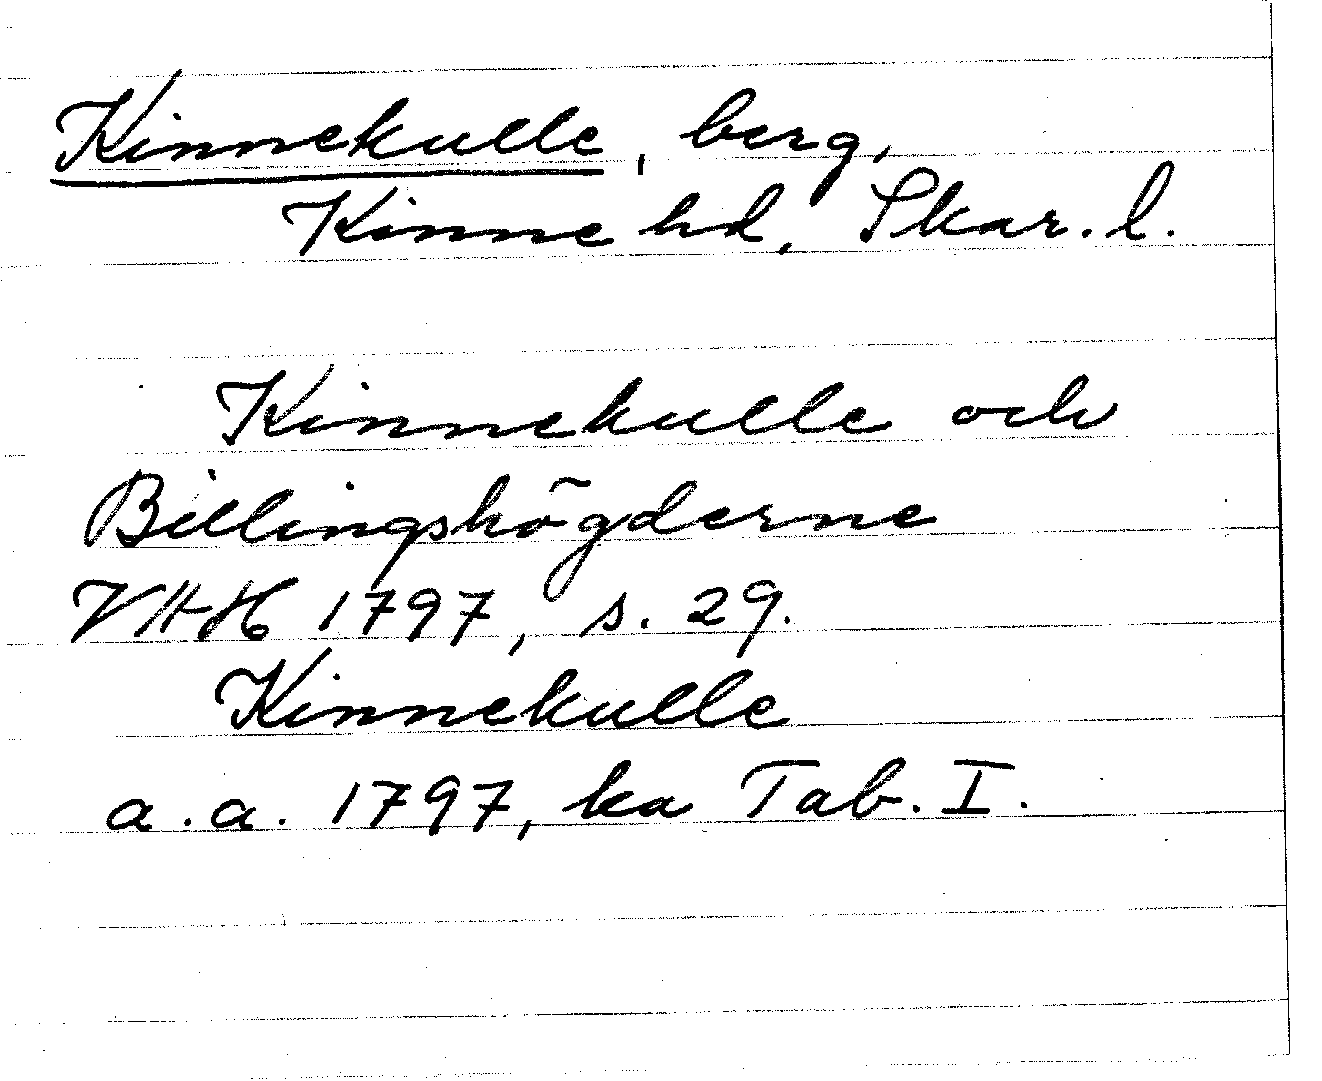 Kinnekulle, berg,
Kinne hd, Skar. l.
Kinnekulle och
Billingshögderne
VHH 1797, s. 29.
Kinnekulle
a.a. 1797, ka Tab. I.